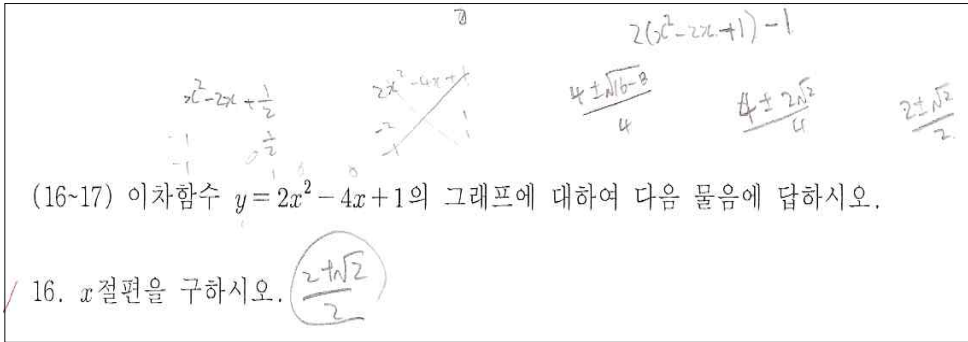 2(x²-2x+1)-1
x²-2x+1/2
2x²-4x+1
(4±√(16-8))/4
(4±2√2)/4
(2±√2)/2
-1 1/2
-2 1
-1 1
-1
(16~17) 이차함수 y=2x²-4x+1의 그래프에 대하여 다음 물음에 답하시오.
16. x절편을 구하시오. (2±√2)/2